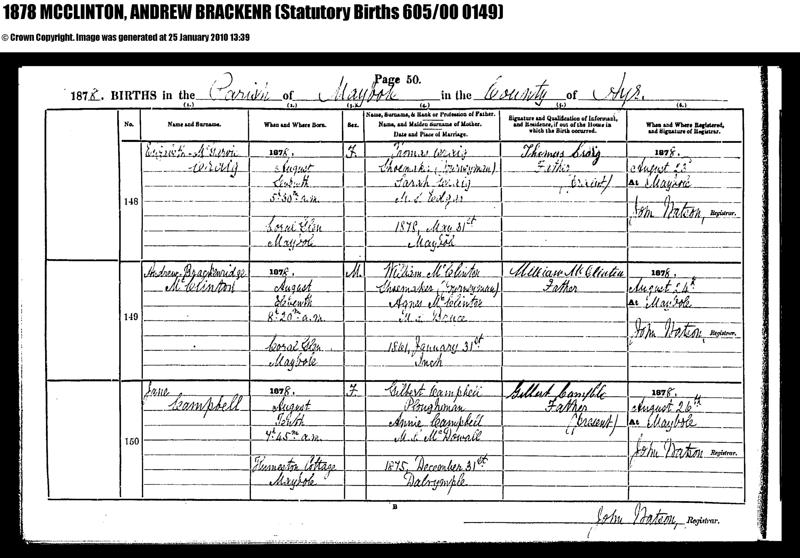 1878 MCCLINTON, ANDREW BRACKENR (Statutory Births 605/00 0149)
© Crown Copyright. Image was generated at 25 January 2010 13:39
Page 50.
1878. BIRTHS in the Parish of Maybole in the County of Ayr.
(1.) (2.) (3.) (4.) (5.) (6.)
No.
Name and Surname.
When and Where Born.
Sex.
Name, Surname, & Rank or Profession of Father.
Name, and Maiden Surname of Mother.
Date and Place of Marriage.
Signature and Qualification of Informant,
and Residence, if out of the House in
which the Birth occurred.
When and Where Registered,
and Signature of Registrar.
148
Craig
1878.
August
5h 30m a.m.
Coral Glen
Maybole
F.
Thomas Craig
Shoemaker (Journeyman)
Sarah Craig
M.S. Edgar
1878, May 31st
Maybole
Thomas Craig
Father
(Present)
1878.
August 23d
At Maybole
John Watson, Registrar.
149
Andrew Brackenridge
McClinton
1878.
August
Eleventh
8h 20m a.m.
Coral Glen
Maybole
M.
William McClinton
Shoemaker (Journeyman)
Agnes McClinton
M.S. Bruce
1861, January 31st
Inch
William McClinton
Father
1878.
August 24th
At Maybole
John Watson, Registrar.
150
Jane
Campbell
1878.
August
Tenth
7h 45m a.m.
Cottage
Maybole
F.
Gilbert Campbell
Ploughman
Annie Campbell
M.S. McDowall
1875, December 31st
Dalrymple
Gilbert Campble
Father
(Present)
1878.
August 26th
At Maybole
John Watson Registrar.
B
John Watson, Registrar.